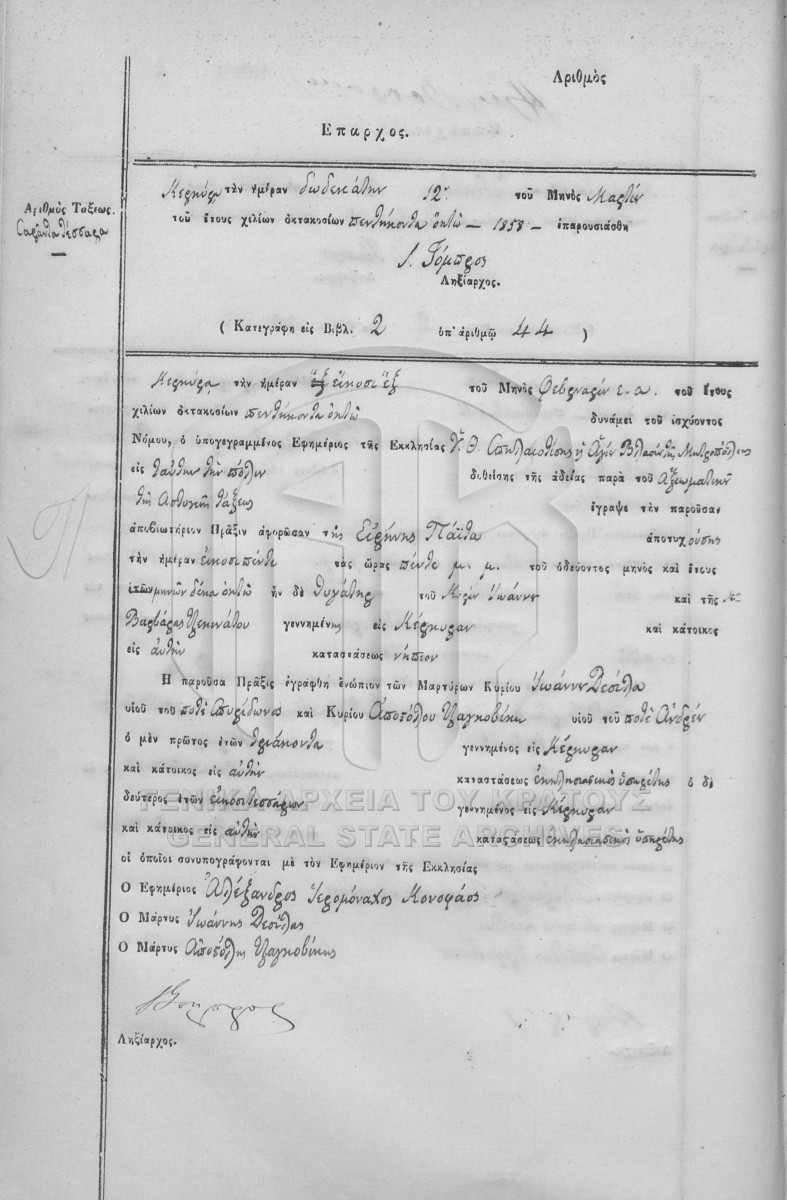 Αριθμὸς
Επαρχος.
Αριθμὸς Τάξεως.
Σαράντα τέσσαρα
Κερκύρᾳ τὴν ἡμέραν δωδεκάτην 12ῃ τοῦ Μηνὸς Μαρτίου
τοῦ ἔτους χιλίων ὀκτακοσίων πεντήκοντα ὀκτὼ — 1858 — ἐπαρουσιάσθη
Ληξίαρχος.
( Κατεγράφη εἰς Βιβλ. 2 ὑπ' ἀριθμῷ 44 )
Κερκύρᾳ τὴν ἡμέραν εἴκοσι ἓξ τοῦ Μηνὸς Φεβρουαρίου ε. α. τοῦ ἔτους
χιλίων ὀκτακοσίων πεντήκοντα ὀκτὼ δυνάμει τοῦ ἰσχύοντος
Νόμου, ὁ ὑπογεγραμμένος Εφημέριος τῆς Εκκλησίας Ὑ. Θ. Σπηλαιωτίσης ἢ Ἁγίου Βλασίου τῆς Μητροπόλεως
εἰς ταύτην τὴν πόλιν δοθείσης τῆς ἀδείας παρὰ τοῦ Ἀξιωματικοῦ
τῆς Ἀστυνομικῆς τάξεως ἔγραψε τὴν παροῦσαν
ἀποβιωτήριον Πρᾶξιν ἀφορῶσαν τῆς Εἰρήνης Πάϊτα ἀποτυχούσης
τὴν ἡμέραν εἴκοσι πέντε τὰς ὥρας πέντε μ. μ. τοῦ ὁδεύοντος μηνὸς καὶ ἔτους
ἐτῶν μηνῶν δέκα ὀκτὼ ἦν δὲ θυγάτηρ τοῦ Κυρίου Ἰωάννου καὶ τῆς Κας
Βαρβάρας γεννημένης εἰς Κέρκυραν καὶ κάτοικος
εἰς αὐτὴν καταστάσεως νήπιον
Η παροῦσα Πρᾶξις ἐγράφθη ἐνώπιον τῶν Μαρτύρων Κυρίου Ἰωάννου Δεσύλα
υἱοῦ τοῦ ποτὲ Σπυρίδωνος καὶ Κυρίου Ἀποστόλου υἱοῦ τοῦ ποτὲ Ἀνδρέου
ὁ μὲν πρῶτος ἐτῶν τριάκοντα γεννημένος εἰς Κέρκυραν
καὶ κάτοικος εἰς αὐτὴν καταστάσεως ἐκκλησιαστικὸς ὑπηρέτης ὁ δὲ
δεύτερος ἐτῶν εἰκοσιτεσσάρων γεννημένος εἰς Κέρκυραν
καὶ κάτοικος εἰς αὐτὴν καταστάσεως ἐκκλησιαστικὸς ὑπηρέτης
οἱ ὁποῖοι συνυπογράφονται μὲ τὸν Εφημέριον τῆς Εκκλησίας
Ο Εφημέριος Ἀλέξανδρος Ἱερομόναχος Μονοφάος
Ο Μάρτυς Ἰωάννης Δεσύλας
Ο Μάρτυς Ἀποστόλης
Ληξίαρχος.
ΓΕΝΙΚΑ ΑΡΧΕΙΑ ΤΟΥ ΚΡΑΤΟΥΣ
GENERAL STATE ARCHIVES